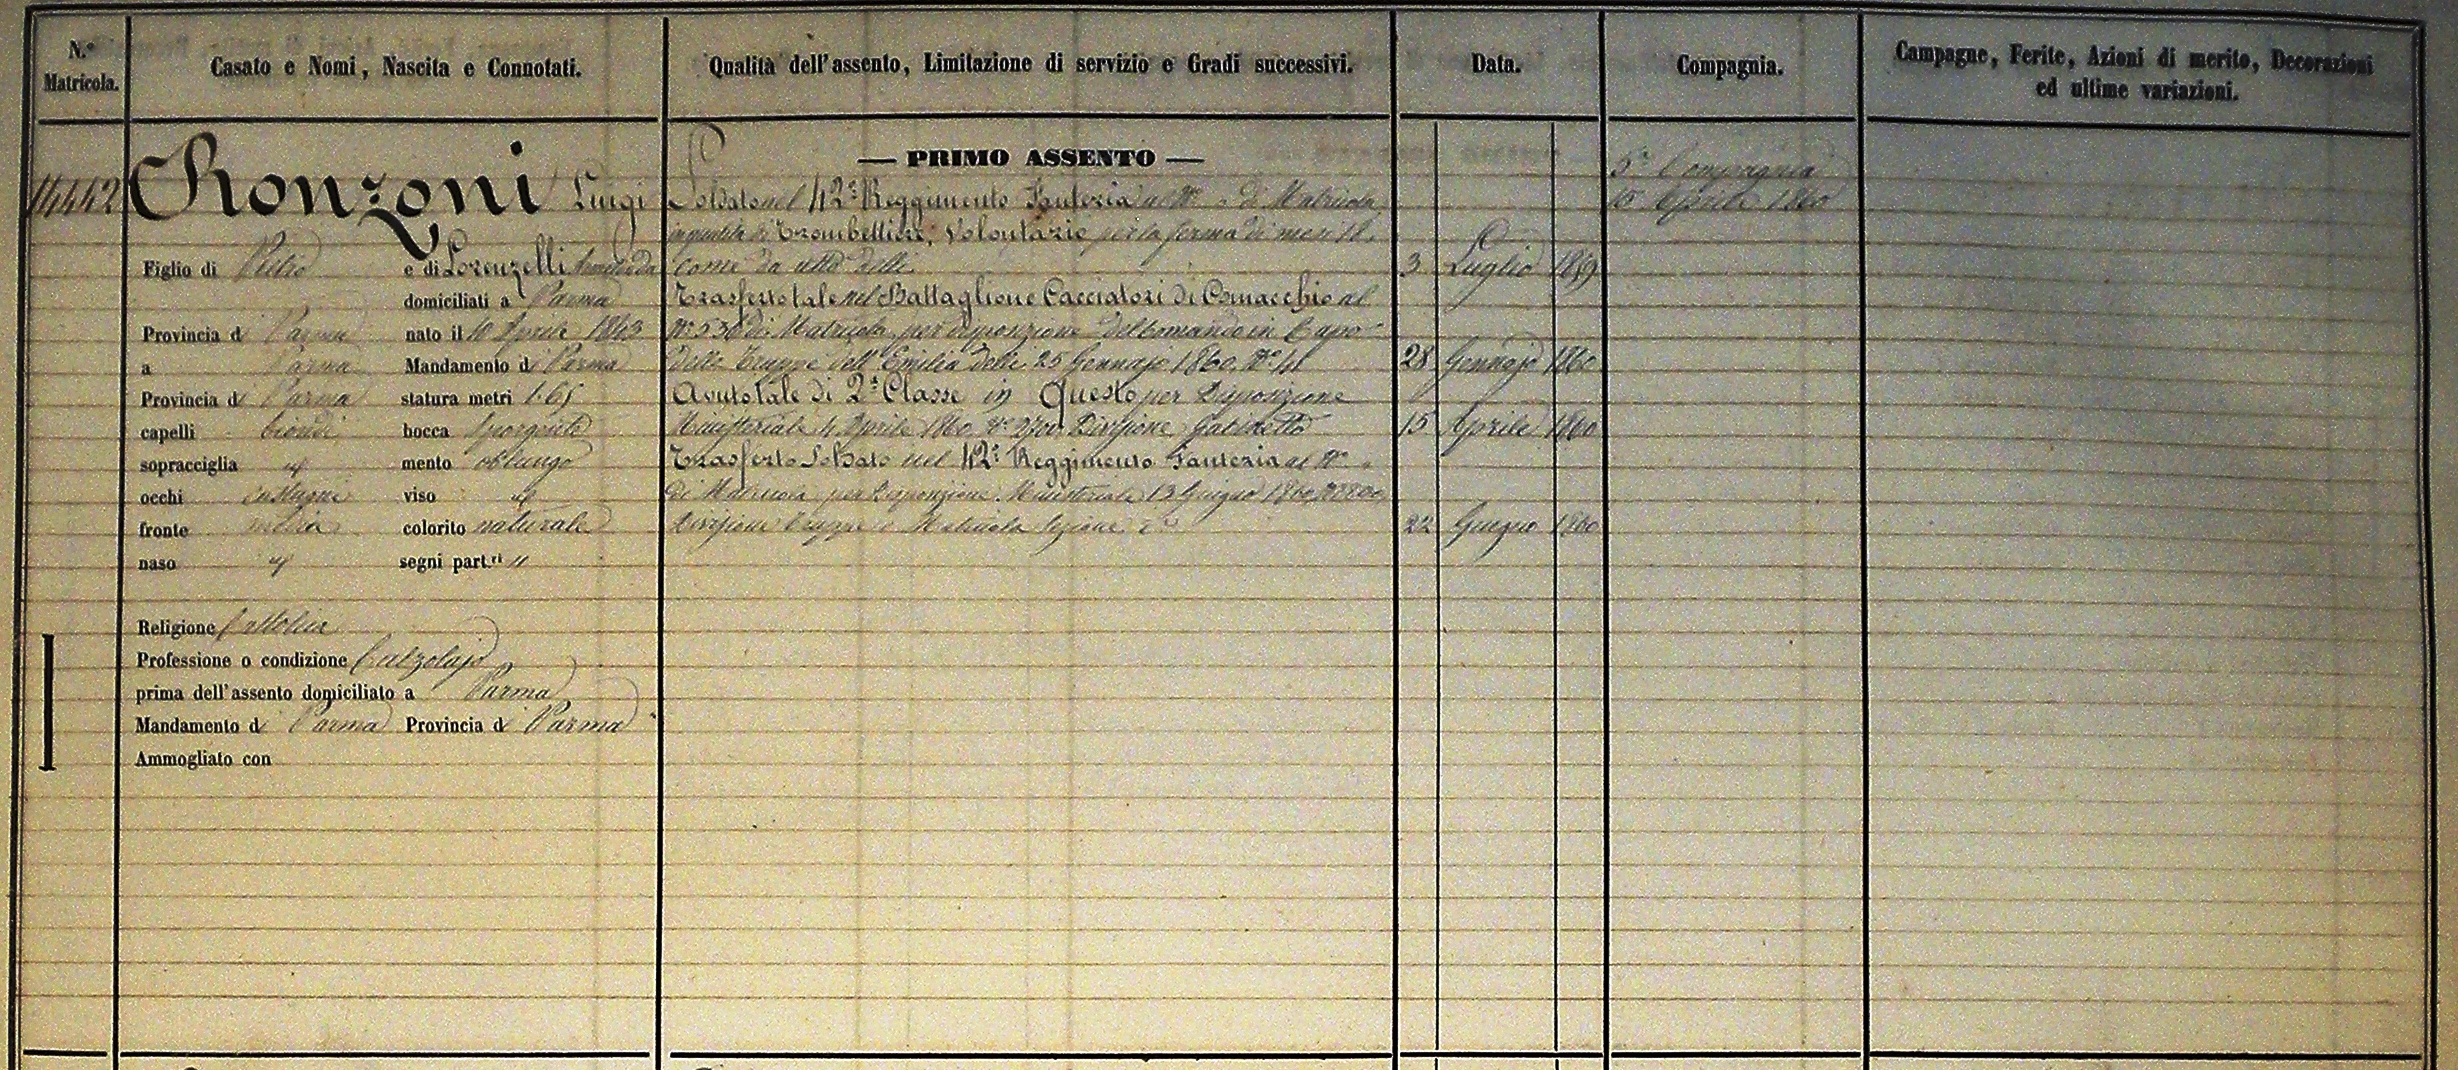 N.° Matricola.
Casato e Nomi, Nascita e Connotati.
Qualità dell'assento, Limitazione di servizio e Gradi successivi.
Data.
Compagnia.
Campagne, Ferite, Azioni di merito, Decorazioni
ed ultime variazioni.
14442
Ronzoni Luigi
Figlio di Pietro e di Lorenzelli
domiciliati a Parma
Provincia di Parma nato il 10 Aprile 1843
a Parma Mandamento di Parma
Provincia di Parma statura metri 1.65
capelli biondi bocca sporgente
sopracciglia id mento oblungo
occhi castagni viso id
fronte media colorito naturale
naso id segni part.ri "
Religione Cattolica
Professione o condizione Calzolajo
prima dell'assento domiciliato a Parma
Mandamento di Parma Provincia di Parma
Ammogliato con
— PRIMO ASSENTO —
Soldato nel 42° Reggimento Fanteria al N° " di Matricola
in qualità di Trombettiere, Volontario per la ferma di mesi
come da atto delli 3 Luglio 1859
Trasferto tale nel Battaglione Cacciatori di Comacchio al
N° 530 di Matricola per disposizione del Comando in Capo
delle Truppe dell'Emilia delli 25 Gennajo 1860 N° 28 Gennajo 1860
Avuto tale di 2ª Classe in Questo per Disposizione
Ministeriale 4 Aprile 1860 N° Divisione Gabinetto 15 Aprile 1860
Trasferto Soldato nel 42° Reggimento Fanteria al N° "
di Matricola per Disposizione Ministeriale 13 Giugno 1860
Divisione Truppe e Matricola Sezione 22 Giugno 1860
5ª Compagnia
15 Aprile 1860